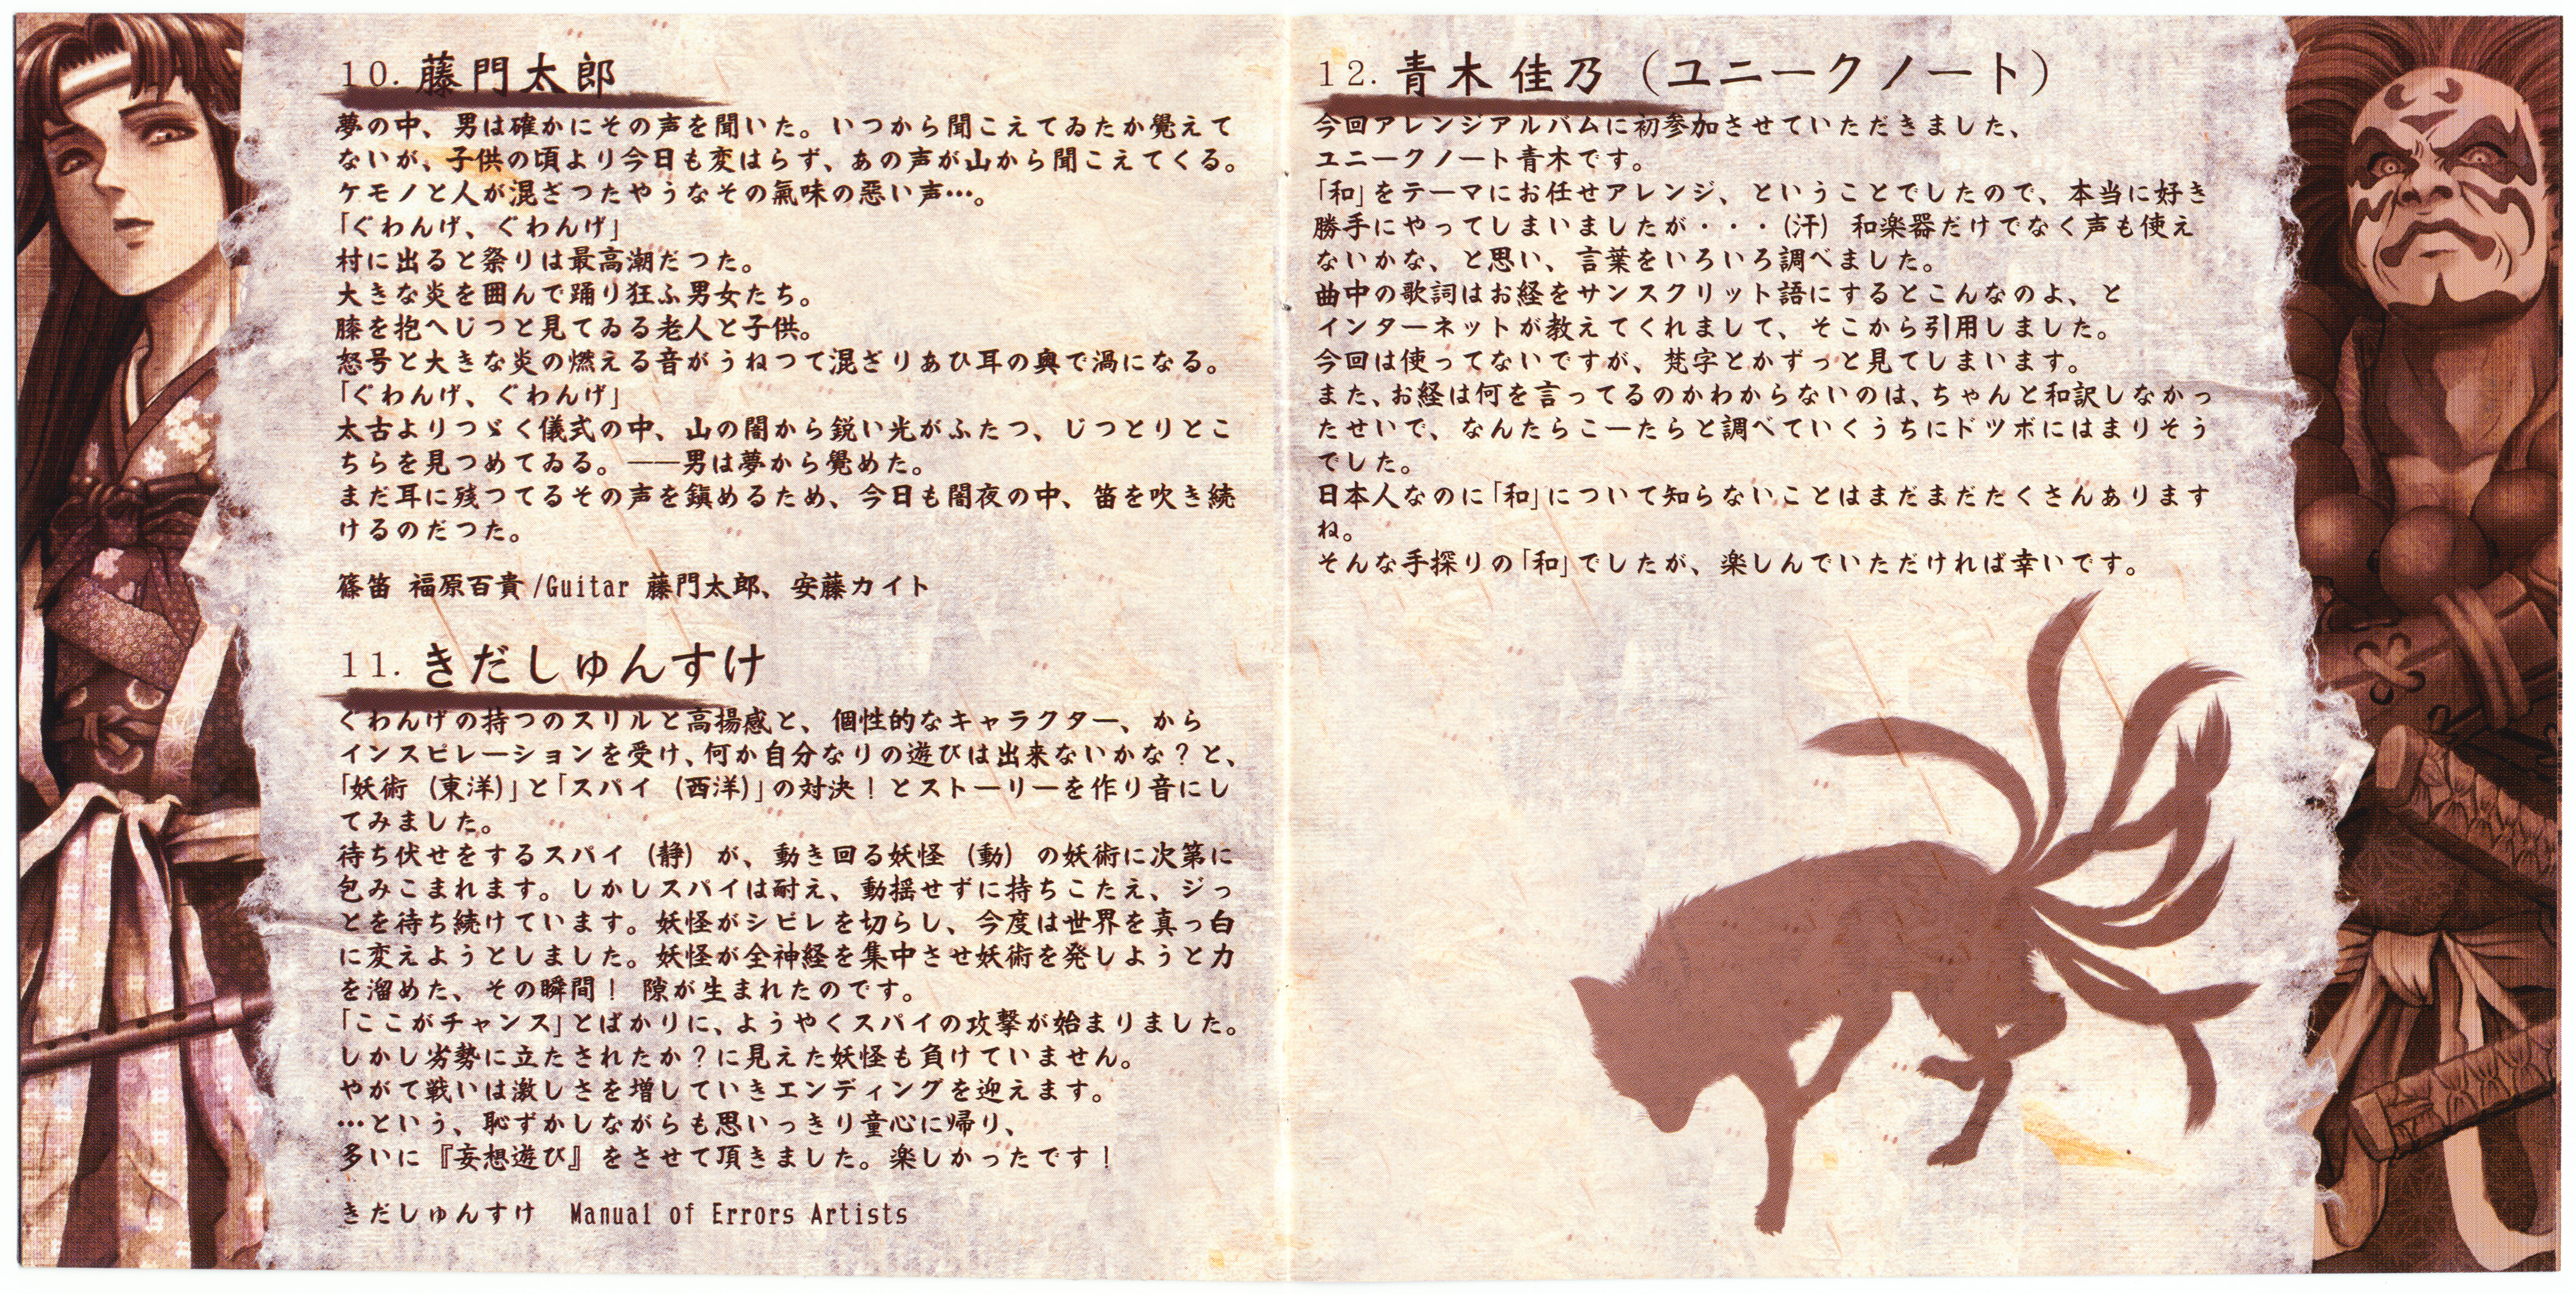 10. 藤門太郎
夢の中、男は確かにその声を聞いた。いつから聞こえてゐたか覺えて
ないが、子供の頃より今日も変はらず、あの声が山から聞こえてくる。
ケモノと人が混ざつたやうなその氣味の悪い声…。
「ぐわんげ、ぐわんげ」
村に出ると祭りは最高潮だつた。
大きな炎を囲んで踊り狂ふ男女たち。
膝を抱へじつと見てゐる老人と子供。
怒号と大きな炎の燃える音がうねつて混ざりあひ耳の奥で渦になる。
「ぐわんげ、ぐわんげ」
太古よりつゞく儀式の中、山の闇から鋭い光がふたつ、じつとりとこ
ちらを見つめてゐる。――男は夢から覺めた。
まだ耳に残つてるその声を鎮めるため、今日も闇夜の中、笛を吹き続
けるのだつた。
篠笛 福原百貴/Guitar 藤門太郎、安藤カイト
11. きだしゅんすけ
ぐわんげの持つのスリルと高揚感と、個性的なキャラクター、から
インスピレーションを受け、何か自分なりの遊びは出来ないかな？と、
「妖術（東洋）」と「スパイ（西洋）」の対決！とストーリーを作り音にし
てみました。
待ち伏せをするスパイ（静）が、動き回る妖怪（動）の妖術に次第に
包みこまれます。しかしスパイは耐え、動揺せずに持ちこたえ、ジっ
とを待ち続けています。妖怪がシビレを切らし、今度は世界を真っ白
に変えようとしました。妖怪が全神経を集中させ妖術を発しようと力
を溜めた、その瞬間！ 隙が生まれたのです。
「ここがチャンス」とばかりに、ようやくスパイの攻撃が始まりました。
しかし劣勢に立たされたか？に見えた妖怪も負けていません。
やがて戦いは激しさを増していきエンディングを迎えます。
…という、恥ずかしながらも思いっきり童心に帰り、
多いに『妄想遊び』をさせて頂きました。楽しかったです！
きだしゅんすけ　Manual of Errors Artists
12. 青木佳乃（ユニークノート）
今回アレンジアルバムに初参加させていただきました、
ユニークノート青木です。
「和」をテーマにお任せアレンジ、ということでしたので、本当に好き
勝手にやってしまいましたが・・・（汗）和楽器だけでなく声も使え
ないかな、と思い、言葉をいろいろ調べました。
曲中の歌詞はお経をサンスクリット語にするとこんなのよ、と
インターネットが教えてくれまして、そこから引用しました。
今回は使ってないですが、梵字とかずっと見てしまいます。
また、お経は何を言ってるのかわからないのは、ちゃんと和訳しなかっ
たせいで、なんたらこーたらと調べていくうちにドツボにはまりそう
でした。
日本人なのに「和」について知らないことはまだまだたくさんあります
ね。
そんな手探りの「和」でしたが、楽しんでいただければ幸いです。